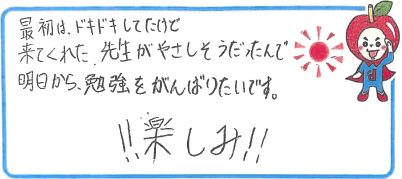 最初は、ドキドキしてたけど
来てくれた、先生がやさしそうだったんで
明日から、勉強をがんばりたいです。
!!楽しみ!!
d